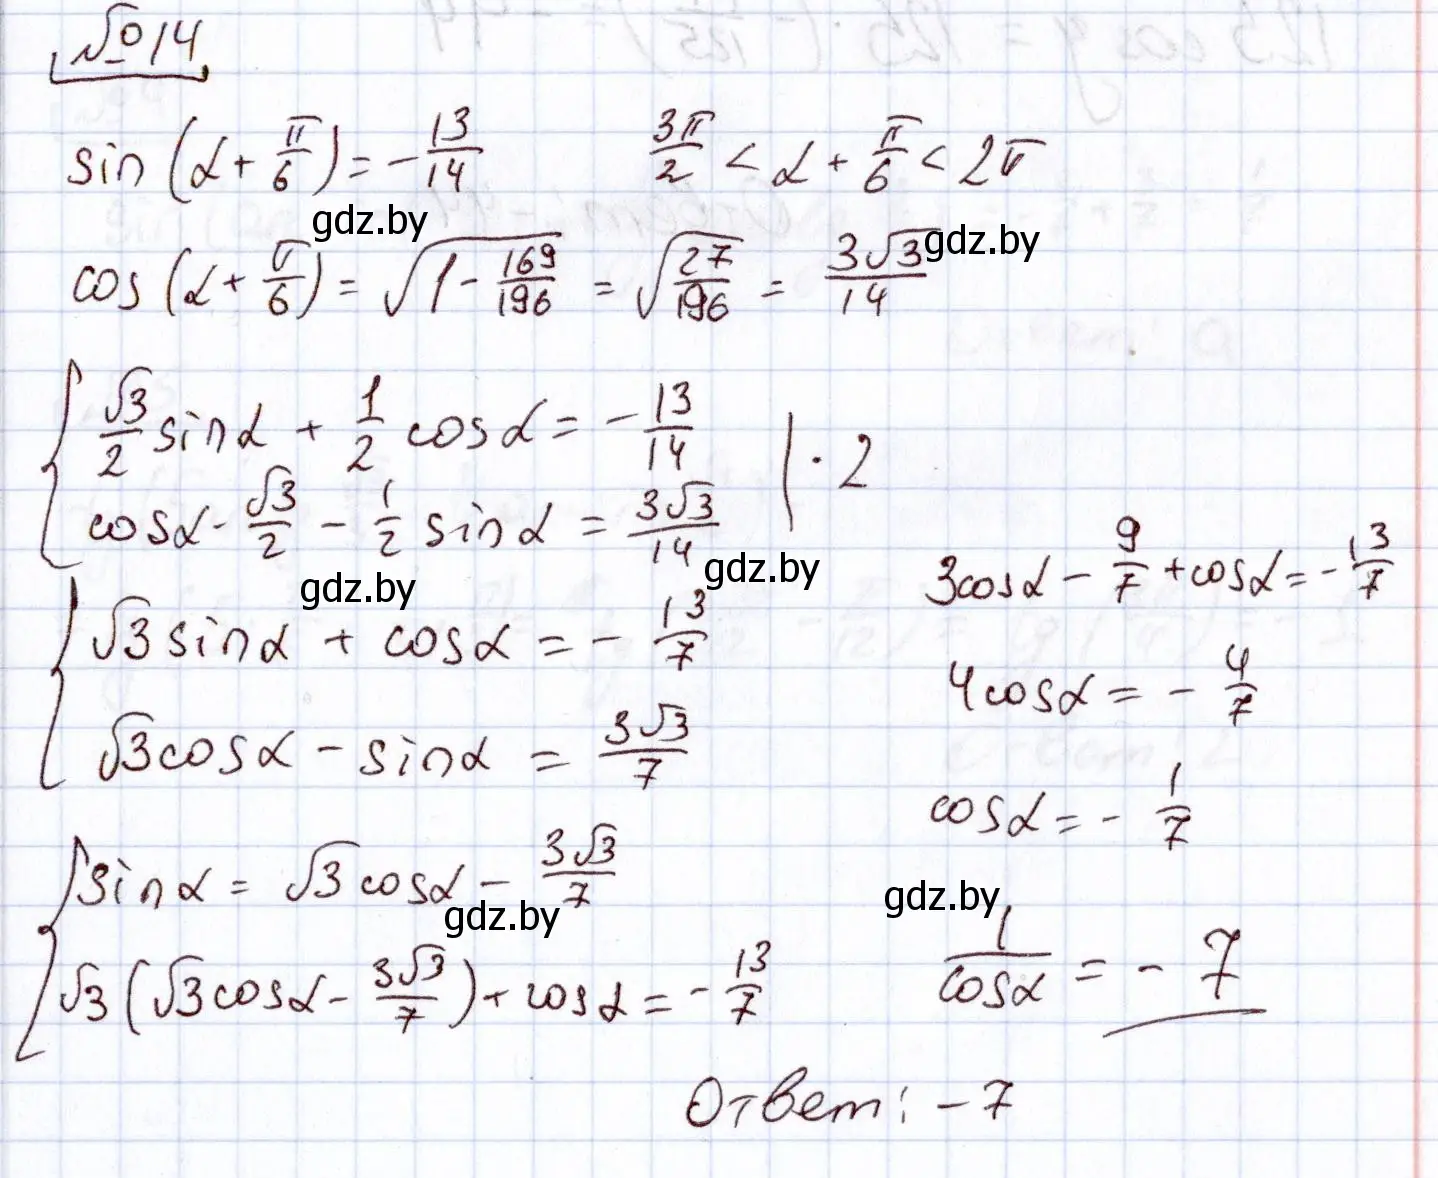 №14
sin(α + π/6) = -13/14    3π/2 < α + π/6 < 2π
gdz.by
gdz.by
cos(α + π/6) = √(1 - 169/196) = √(27/196) = 3√3/14
{ √3/2 sinα + 1/2 cosα = -13/14
cosα · √3/2 - 1/2 sinα = 3√3/14   | · 2
gdz.by
gdz.by
{ √3 sinα + cosα = -13/7
√3cosα - sinα = 3√3/7
{ sinα = √3cosα - 3√3/7
gdz.by
√3(√3cosα - 3√3/7) + cosα = -13/7
3cosα - 9/7 + cosα = -13/7
4cosα = -4/7
cosα = -1/7
gdz.by
1/cosα = -7
Ответ: -7